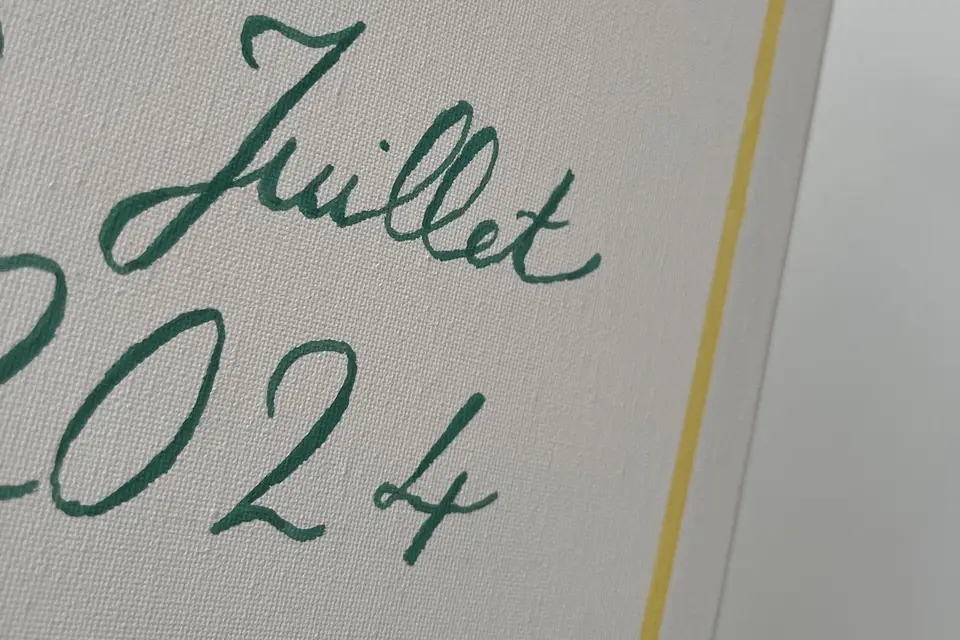 Juillet
2024